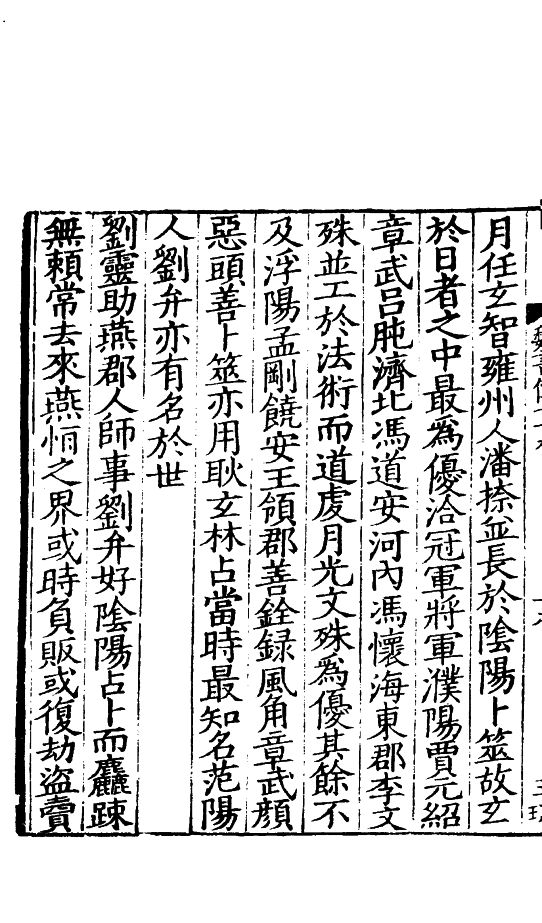 月任玄智雍州人潘捺並長於隂陽卜筮故玄
於日者之中最爲優洽冠軍將軍濮陽賈元紹
章武呂肫濟北馮道安河内馮懷海東郡李文
殊並工於法術而道虔月光文殊爲優其餘不
及浮陽孟剛饒安王領郡善銓録風角章武顔
惡頭善卜筮亦用耿玄林占當時最知名范陽
人劉弁亦有名於世
劉靈助燕郡人師事劉弁好隂陽占卜而麤踈
無賴常去來燕恒之界或時負販或復劫盜賣